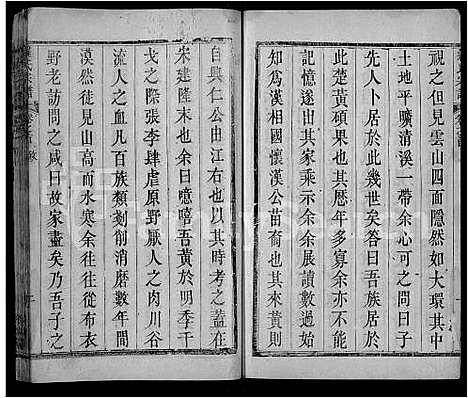 視之但見雲山四面隱然如大環其中
土地平曠清溪一帶余心可之問曰子
先人卜居於此幾世矣答曰吾族居於
此楚黃碩果也然其歷年多實余不能
記憶遂出其家乘示余余展讀數過始
知為漢相國懷漢公苗裔也其來黃則
自興仁公由江右也以其時考之蓋在
宋建隆末也余曰噫嘻吾黃於明季干
戈之際張李肆虐原野厭人之肉川谷
流人之血凡百族類剗削消磨數年間
漠然徒見山高而水寒余往往從布衣
野老訪問之咸曰故家盡矣乃吾子之